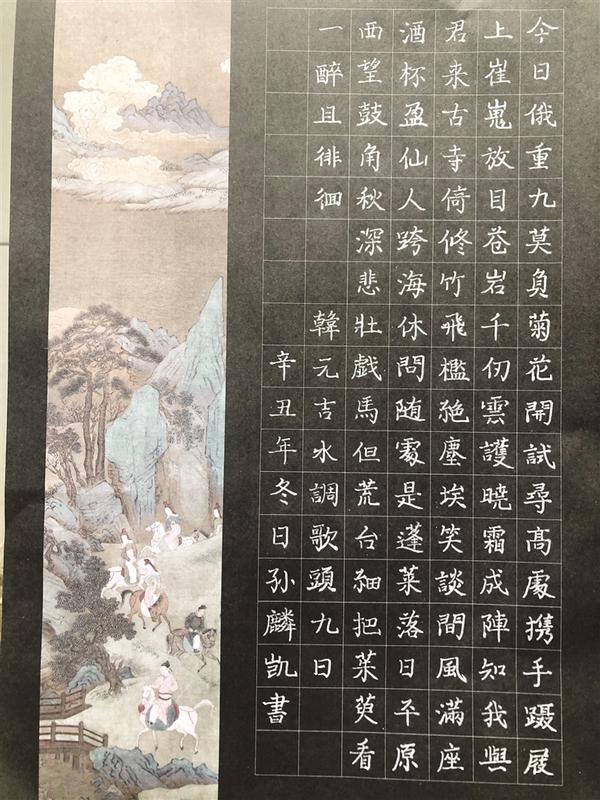 今日俄重九莫負菊花開試尋髙處携手蹑屐
上崔嵬放目苍岩千仞雲護曉霜成陣知我與
君来古寺倚修竹飛檻絶塵埃笑談間風滿座
酒杯盈仙人跨海休問随處是蓬莱落日平原
西望鼓角秋深悲壮戯馬但荒台細把茱萸看
一醉且徘徊 韓元吉水調歌頭九日
辛丑年冬日孙麟凯書